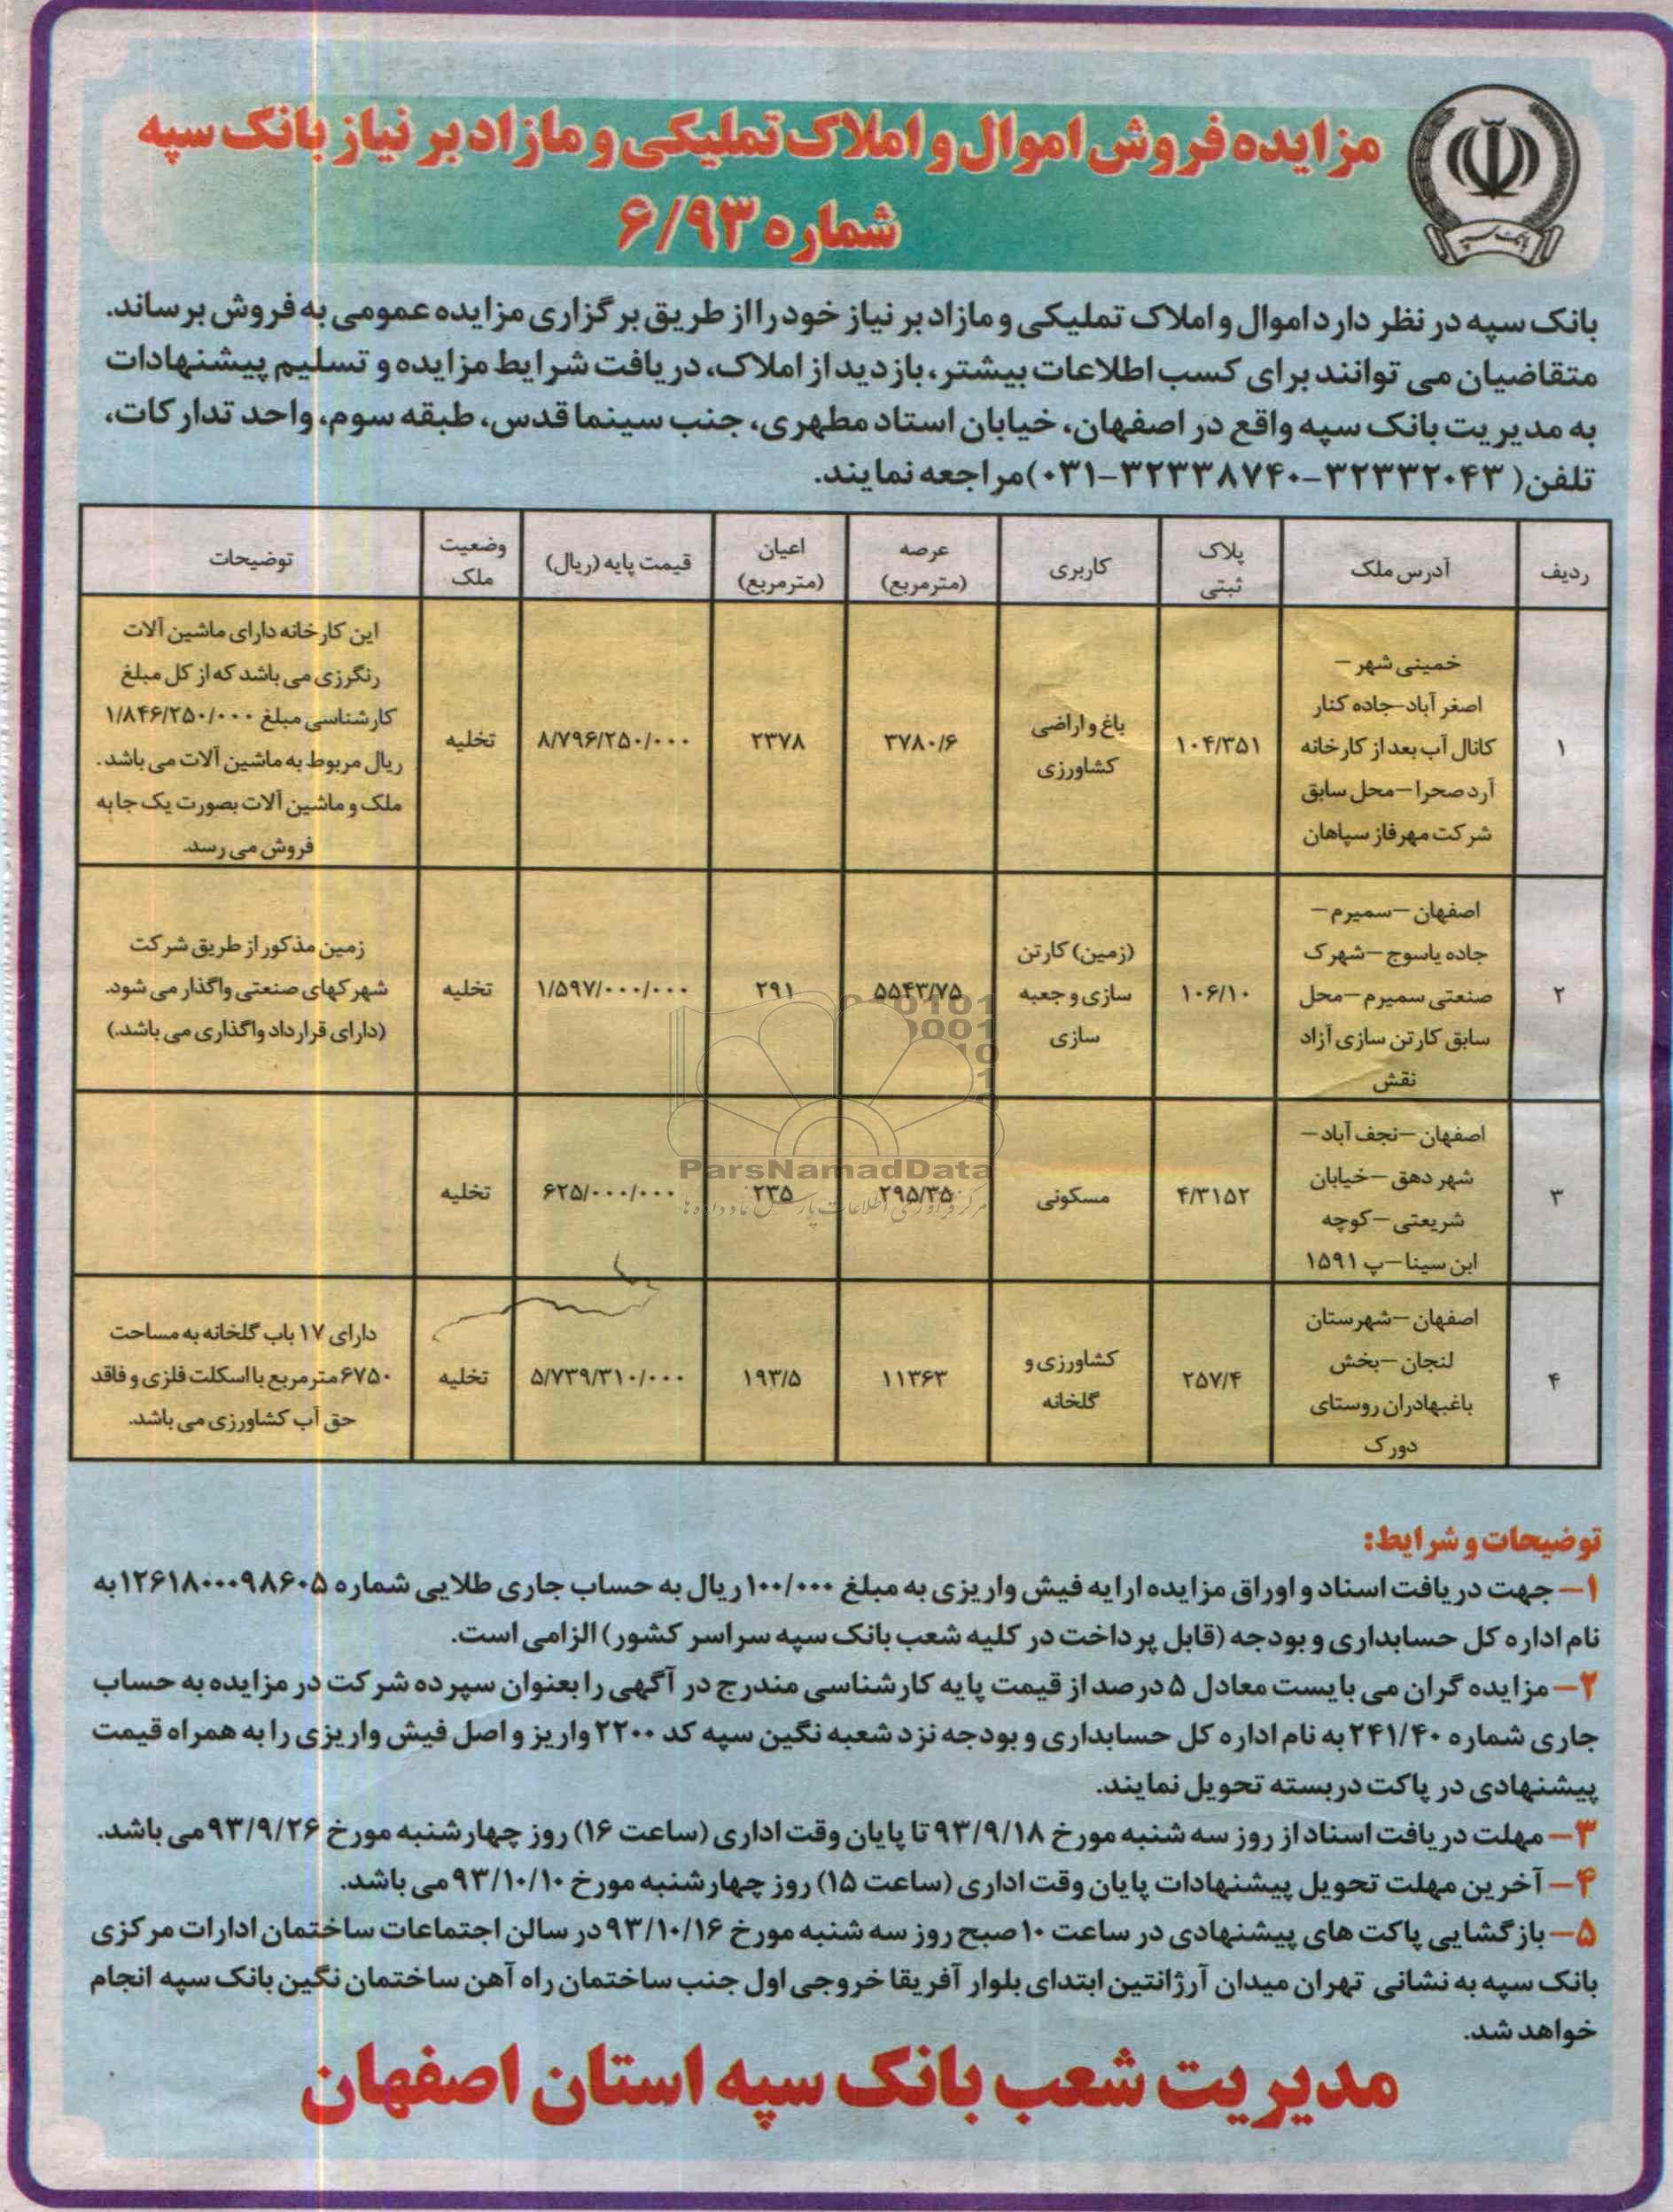 مزایده فروش اموال و املاک تملیکی و مازاد بر نیاز بانک سپه
شماره ۶/۹۳
بانک سپه
بانک سپه در نظر دارد اموال و املاک تملیکی و مازاد بر نیاز خود را از طریق برگزاری مزایده عمومی به فروش برساند.
متقاضیان می توانند برای کسب اطلاعات بیشتر، بازدید از املاک، دریافت شرایط مزایده و تسلیم پیشنهادات
به مدیریت بانک سپه واقع در اصفهان، خیابان استاد مطهری، جنب سینما قدس، طبقه سوم، واحد تدارکات،
تلفن (۳۲۳۳۲۰۴۳-۳۲۳۳۸۷۴۰-۰۳۱) مراجعه نمایند.
ردیف
آدرس ملک
پلاک
ثبتی
کاربری
عرصه
(مترمربع)
اعیان
(مترمربع)
قیمت پایه (ریال)
وضعیت
ملک
توضیحات
۱
خمینی شهر –
اصغر آباد-جاده کنار
کانال آب بعد از کارخانه
آرد صحرا – محل سابق
شرکت مهرفاز سپاهان
۱۰۴/۳۵۱
باغ و اراضی
کشاورزی
۳۷۸۰/۶
۲۳۷۸
۸/۷۹۶/۲۵۰/۰۰۰
تخلیه
این کارخانه دارای ماشین آلات
رنگرزی می باشد که از کل مبلغ
کارشناسی مبلغ ۱/۸۴۶/۲۵۰/۰۰۰
ریال مربوط به ماشین آلات می باشد.
ملک و ماشین آلات بصورت یک جا به
فروش می رسد.
۲
اصفهان – سمیرم –
جاده یاسوج – شهرک
صنعتی سمیرم – محل
سابق کارتن سازی آزاد
نقش
۱۰۶/۱۰
(زمین) کارتن
سازی و جعبه
سازی
۵۵۴۳/۷۵
۲۹۱
۱/۵۹۷/۰۰۰/۰۰۰
تخلیه
زمین مذکور از طریق شرکت
شهرکهای صنعتی واگذار می شود.
(دارای قرارداد واگذاری می باشد.)
۳
اصفهان – نجف آباد –
شهر دهق – خیابان
شریعتی – کوچه
ابن سینا – پ ۱۵۹۱
۴/۳۱۵۲
مسکونی
۲۹۵/۳۵
۲۳۵
۶۲۵/۰۰۰/۰۰۰
تخلیه
۴
اصفهان – شهرستان
لنجان – بخش
باغبهادران روستای
دورک
۲۵۷/۴
کشاورزی و
گلخانه
۱۱۳۶۳
۱۹۳/۵
۵/۷۳۹/۳۱۰/۰۰۰
تخلیه
دارای ۱۷ باب گلخانه به مساحت
۶۷۵۰ مترمربع با اسکلت فلزی و فاقد
حق آب کشاورزی می باشد.
ParsNamadData
مرکز فرآوری اطلاعات پارس نماد داده ها
توضیحات و شرایط:
۱– جهت دریافت اسناد و اوراق مزایده ارایه فیش واریزی به مبلغ ۱۰۰/۰۰۰ ریال به حساب جاری طلایی شماره ۱۲۶۱۸۰۰۰۹۸۶۰۵ به
نام اداره کل حسابداری و بودجه (قابل پرداخت در کلیه شعب بانک سپه سراسر کشور) الزامی است.
۲– مزایده گران می بایست معادل ۵ درصد از قیمت پایه کارشناسی مندرج در آگهی را بعنوان سپرده شرکت در مزایده به حساب
جاری شماره ۲۴۱/۴۰ به نام اداره کل حسابداری و بودجه نزد شعبه نگین سپه کد ۲۲۰۰ واریز و اصل فیش واریزی را به همراه قیمت
پیشنهادی در پاکت دربسته تحویل نمایند.
۳– مهلت دریافت اسناد از روز سه شنبه مورخ ۹۳/۹/۱۸ تا پایان وقت اداری (ساعت ۱۶) روز چهارشنبه مورخ ۹۳/۹/۲۶ می باشد.
۴– آخرین مهلت تحویل پیشنهادات پایان وقت اداری (ساعت ۱۵) روز چهارشنبه مورخ ۹۳/۱۰/۱۰ می باشد.
۵– بازگشایی پاکت های پیشنهادی در ساعت ۱۰ صبح روز سه شنبه مورخ ۹۳/۱۰/۱۶ در سالن اجتماعات ساختمان ادارات مرکزی
بانک سپه به نشانی تهران میدان آرژانتین ابتدای بلوار آفریقا خروجی اول جنب ساختمان راه آهن ساختمان نگین بانک سپه انجام
خواهد شد.
مدیریت شعب بانک سپه استان اصفهان